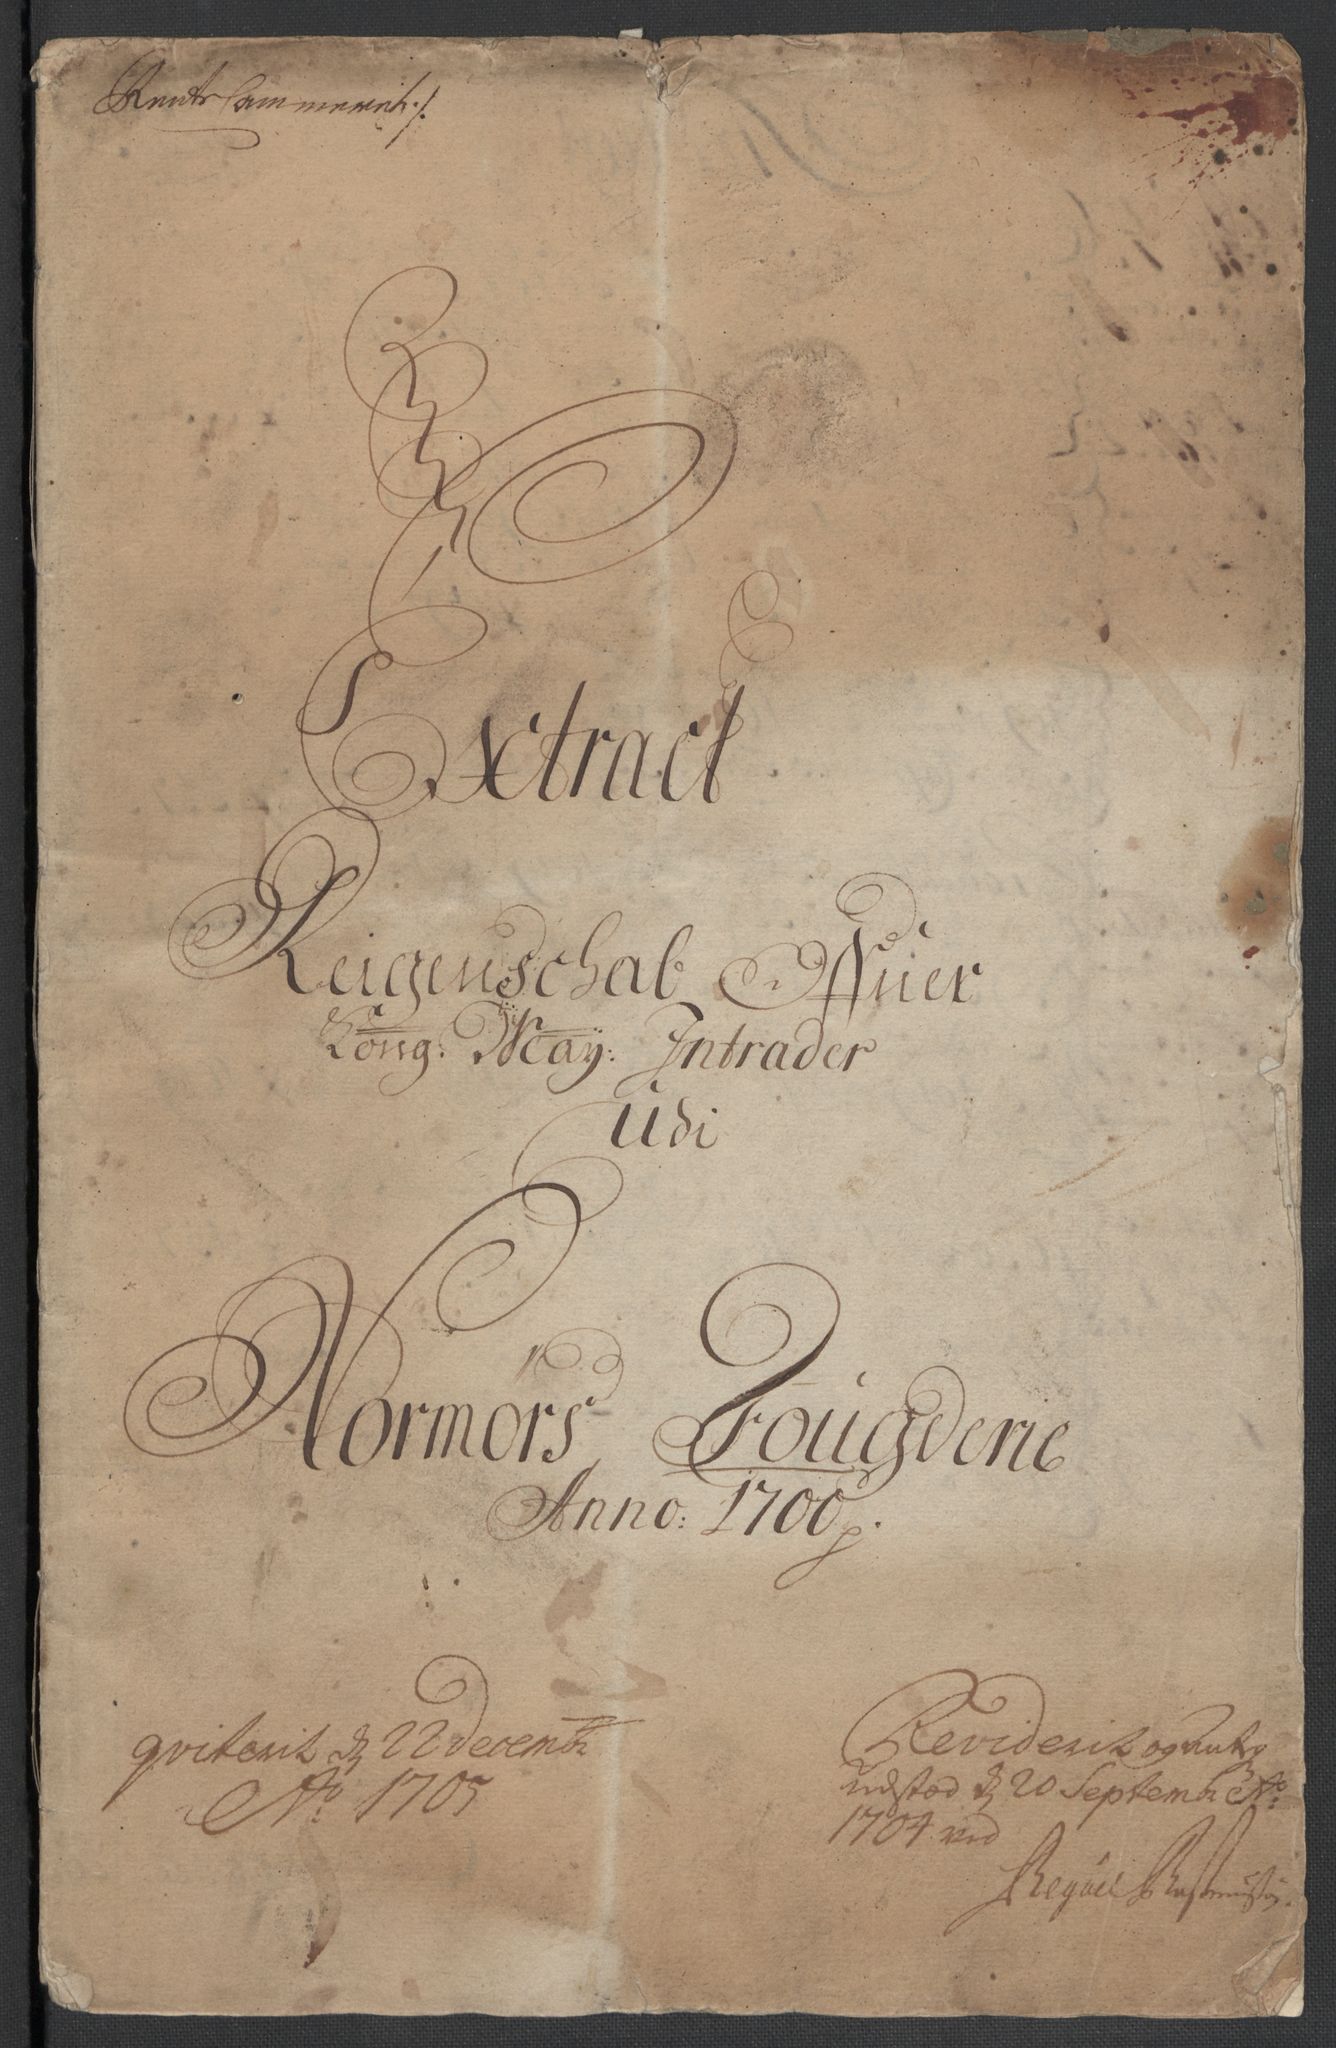 Rente Cammeret ./.
Extract
Reigenschab Offuer
Kong: May: Intrader
Udi
Normørs Fougderie
Anno: 1700
qviterit d 22 decembr
Ao 1705
Reviderit og antg
udstød d 20 Septembr Ao
1704 ved